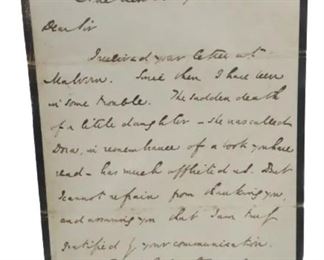 Dear Sir
I received your letter at
Malvern. Since then I have been
in some trouble. The sudden death
of a little daughter – she was called
Dora, in remembrance of a book you have
read – has much afflicted us. But
I cannot refrain from thanking you,
and assuring you that I am truly
gratified by your communication.